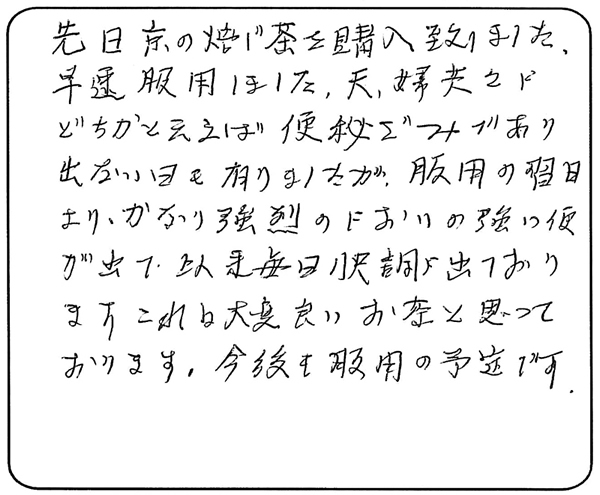 先日京の焙じ茶を購入致しました、
早速服用しました、夫、婦共に
どちかと云えば便秘ぎみであり
出ない日も有りましたが、服用の翌日
より、かなり強烈のにおいの強い便
が出て、以来毎日快調に出ており
ます これは大変良いお茶と思って
おります。今後も服用の予定です.